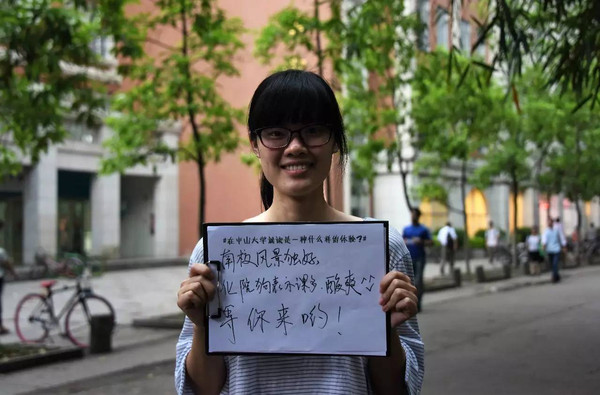 #在中山大学就读是一种什么样的体验?#
南校风景独好,
化院狗表示课多,酸爽
等你来哟!